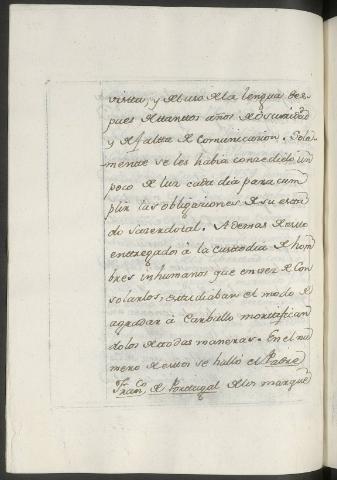 vista, y del uso de la lengua des-
pues de tanttos años de oscuridad
y de faltta de Comunicacion. Sola-
mente se les habia concedido un
poco de luz cada dia para cum
plir las obligaciones de su esta
do Sacerdotal. Ademas de esto
entregados à la custtodia de hom
bres inhumanos que en vez de Con
solarlos, esttudiaban el modo de
agradar à Carballo morttifican
dolos de todas maneras. En el nu
mero de esttos se halló el Padre
Franco. de Porttugal de los marque